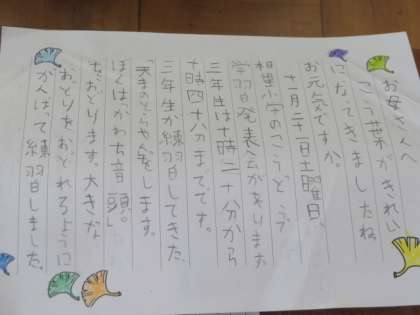 お母さんへ
こう葉がきれい
になってきましたね。
お元気ですか。
十一月二十一日土曜日、
相里小学のこうどうで
学習発表会があります。
三年生は十時二十分から
十時四十八分までです。
三年生が練習してきた
「天まのとらやん」をします。
ぼくは「かわち音頭」
でおどります。大きな
おどりをおどれるように
がんばって練習しました。